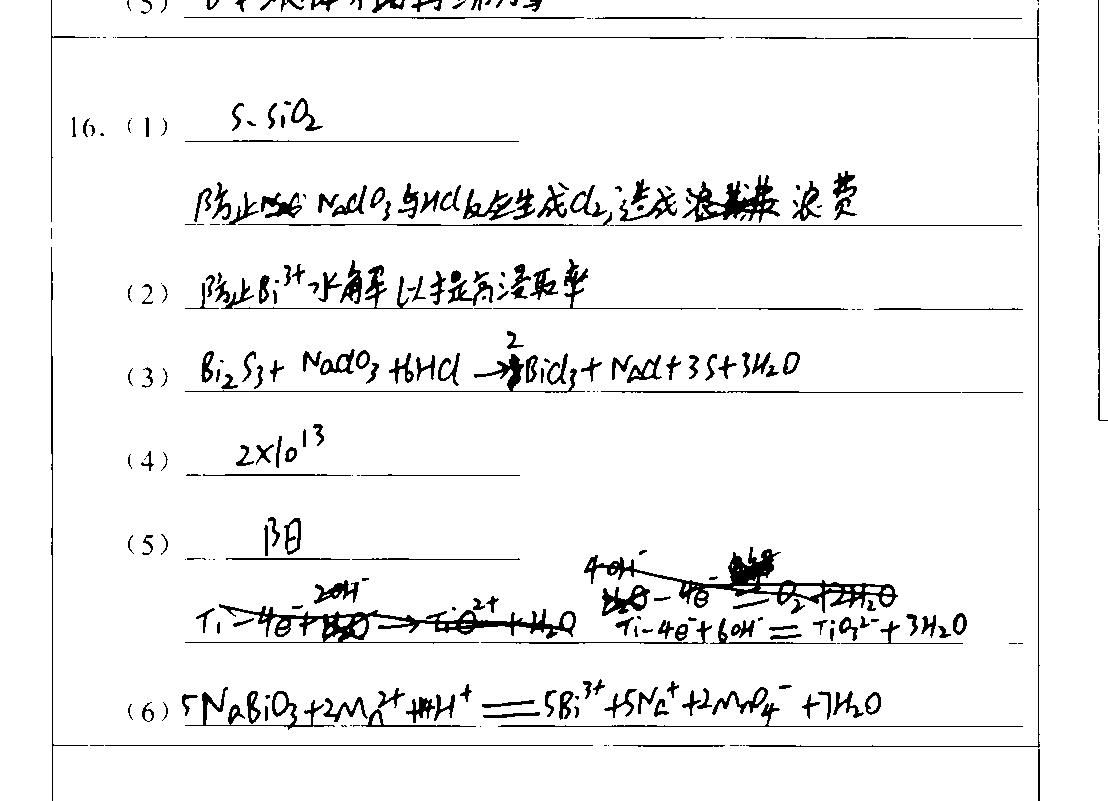 (5)
16. (1) S、SiO₂
防止 NaClO₃与HCl反应生成Cl₂,造成浪费
(2) 防止Bi³⁺水解 以提高浸取率
(3) Bi₂S₃+ NaClO₃+6HCl →2BiCl₃+NaCl+3S+3H₂O
(4) 2×10¹³
(5) 阳
Ti-4e⁻+6OH⁻=TiO₃²⁻+3H₂O
(6) 5NaBiO₃+2Mn²⁺+14H⁺=5Bi³⁺+5Na⁺+2MnO₄⁻+7H₂O